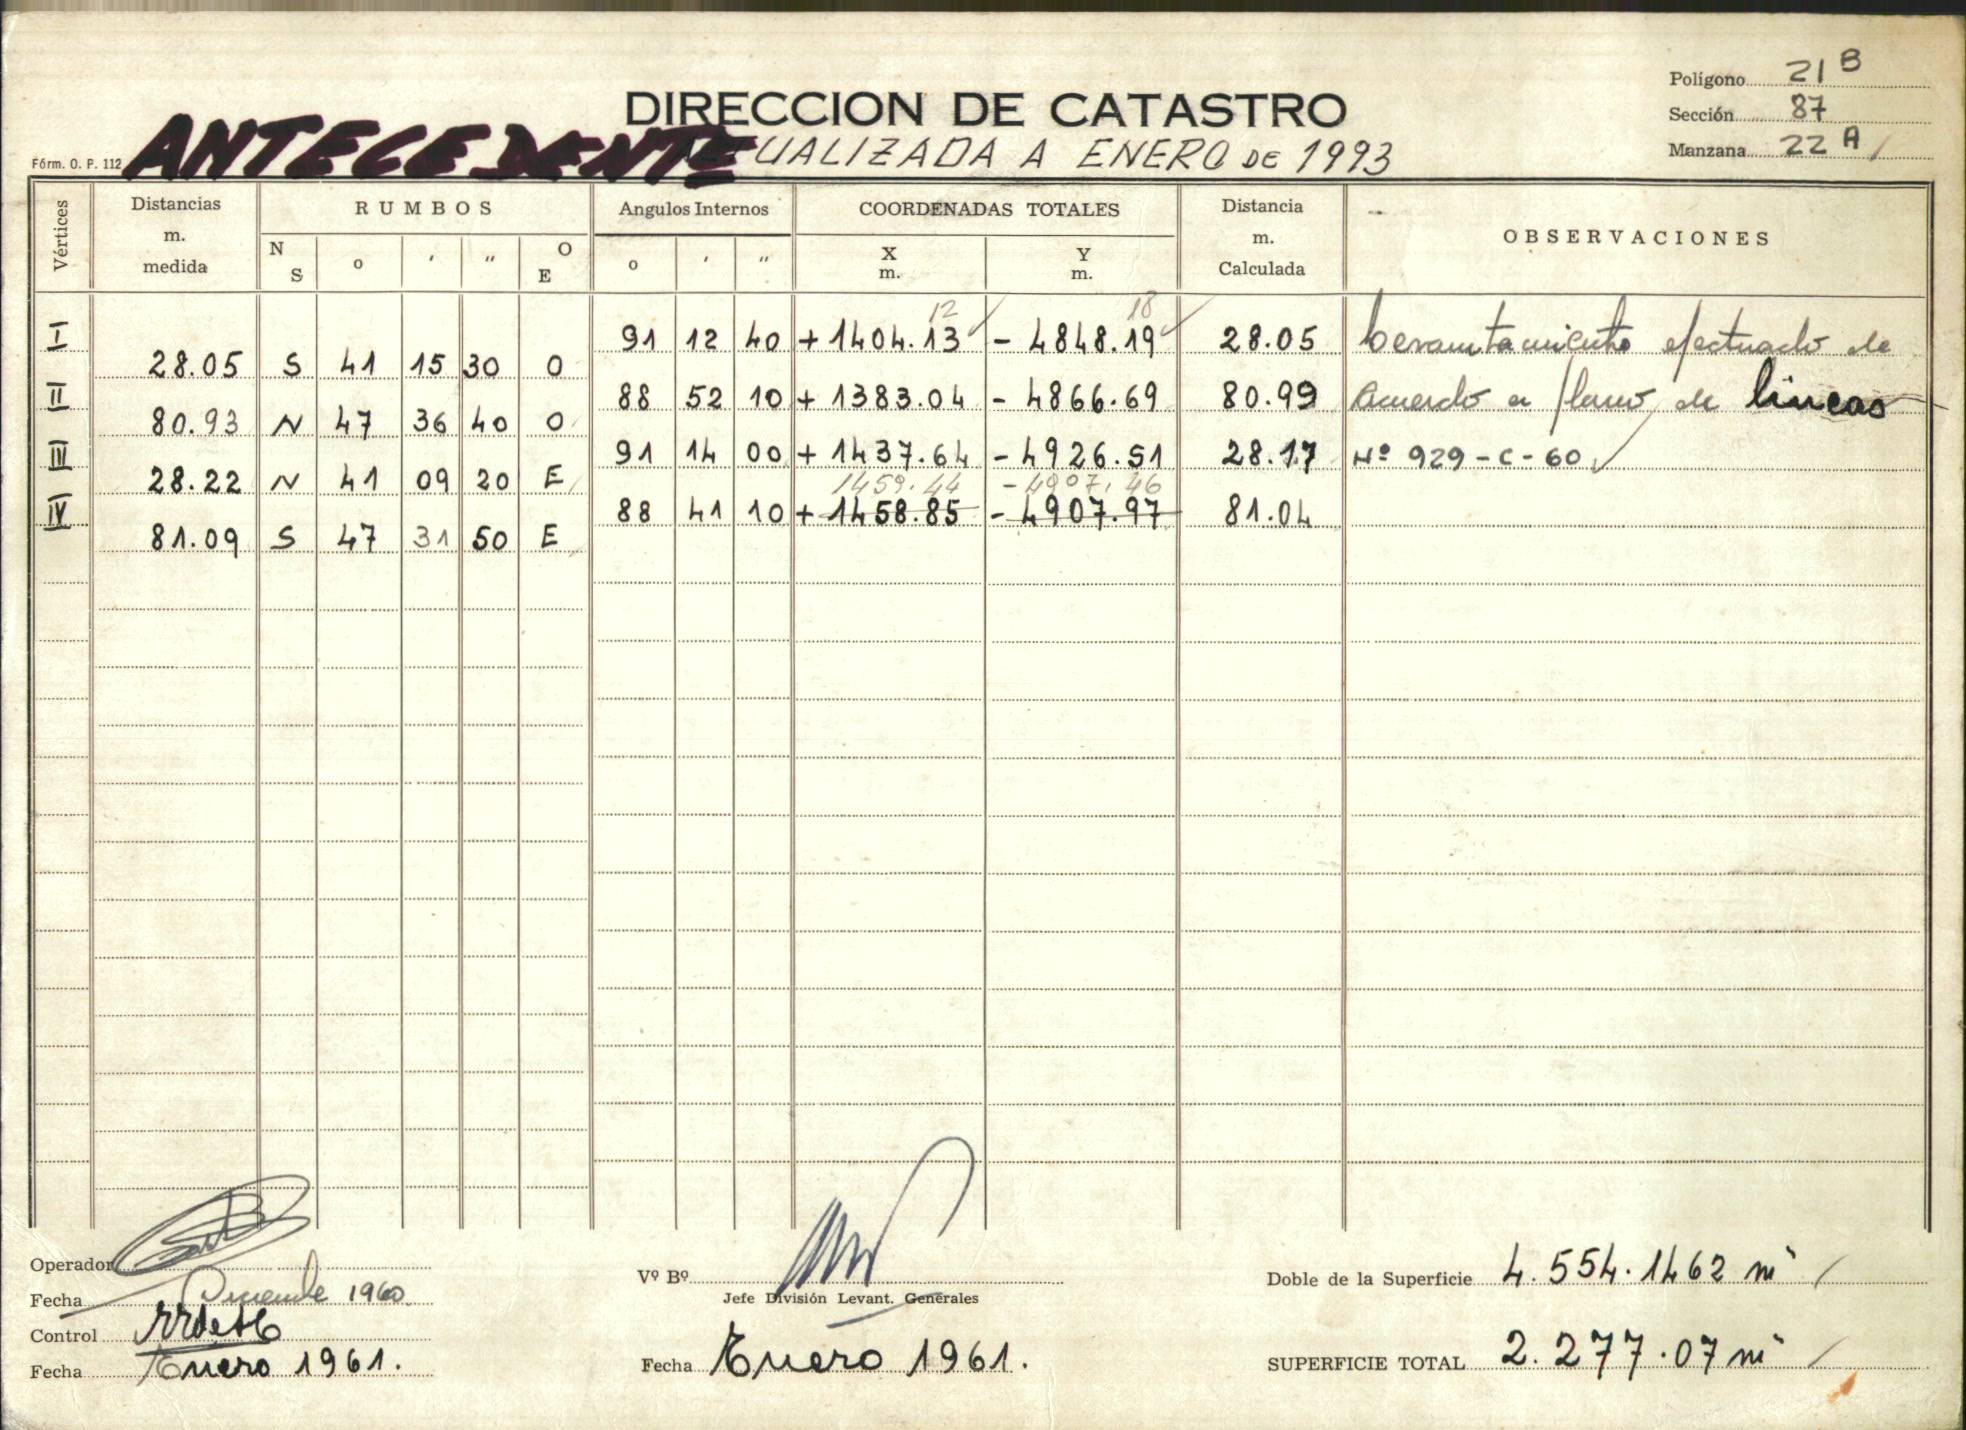 Polígono 21 B
DIRECCION DE CATASTRO
Sección 87
ANTECEDENTE
UALIZADA A ENERO DE 1993
Manzana 22 A
Fórm. O. P. 112
Vértices
Distancias m. medida
RUMBOS
N S o ' " O E
Angulos Internos
o ' "
COORDENADAS TOTALES
X m. Y m.
Distancia m. Calculada
OBSERVACIONES
12 18
I 91 12 40 + 1404.13 - 4848.19 28.05 Levantamiento efectuado de
28.05 S 41 15 30 O
II 88 52 10 + 1383.04 - 4866.69 80.99 acuerdo a plano de lineas
80.93 N 47 36 40 O
III 91 14 00 + 1437.64 - 4926.51 28.17 Nº 929-C-60
28.22 N 41 09 20 E
1459.44 - 4907.46
IV 88 41 10 + 1458.85 - 4907.97 81.04
81.09 S 47 31 50 E
Operador
Fecha Diciembre 1960
Control
Fecha Enero 1961.
Vº Bº
Jefe División Levant. Generales
Fecha Enero 1961.
Doble de la Superficie 4.554.1462 m²
SUPERFICIE TOTAL 2.277.07 m²